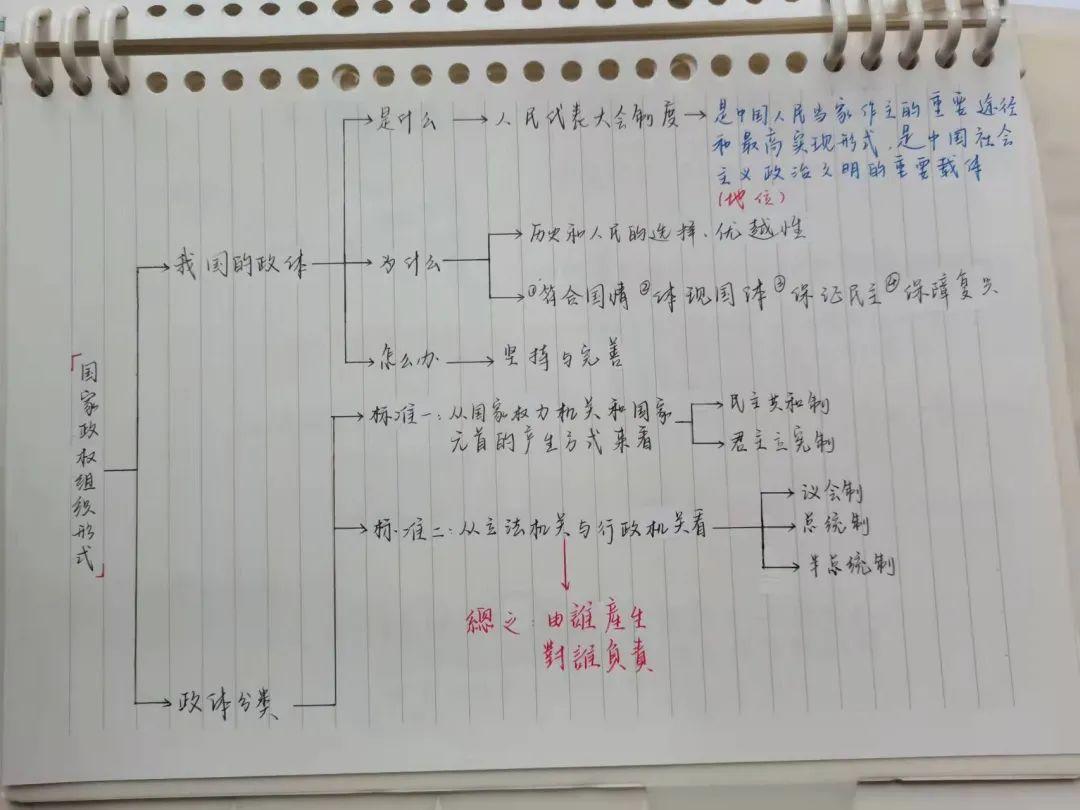 是什么
人民代表大会制度
是中国人民当家作主的重要途径
和最高实现形式，是中国社会
主义政治文明的重要载体
（地位）
我国的政体
为什么
历史和人民的选择、优越性
①符合国情 ②体现国体 ③保证民主 ④保障复兴
怎么办
坚持与完善
「国家政权组织形式」
标准一：从国家权力机关和国家
元首的产生方式来看
民主共和制
君主立宪制
标准二：从立法机关与行政机关看
议会制
总统制
半总统制
總之：由誰產生
對誰負責
政体分类